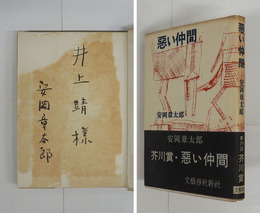 井上靖様
安岡章太郎
悪い仲間
安岡章太郎
安岡章太郎
芥川賞・悪い仲間
文藝春秋新社
悪い仲間